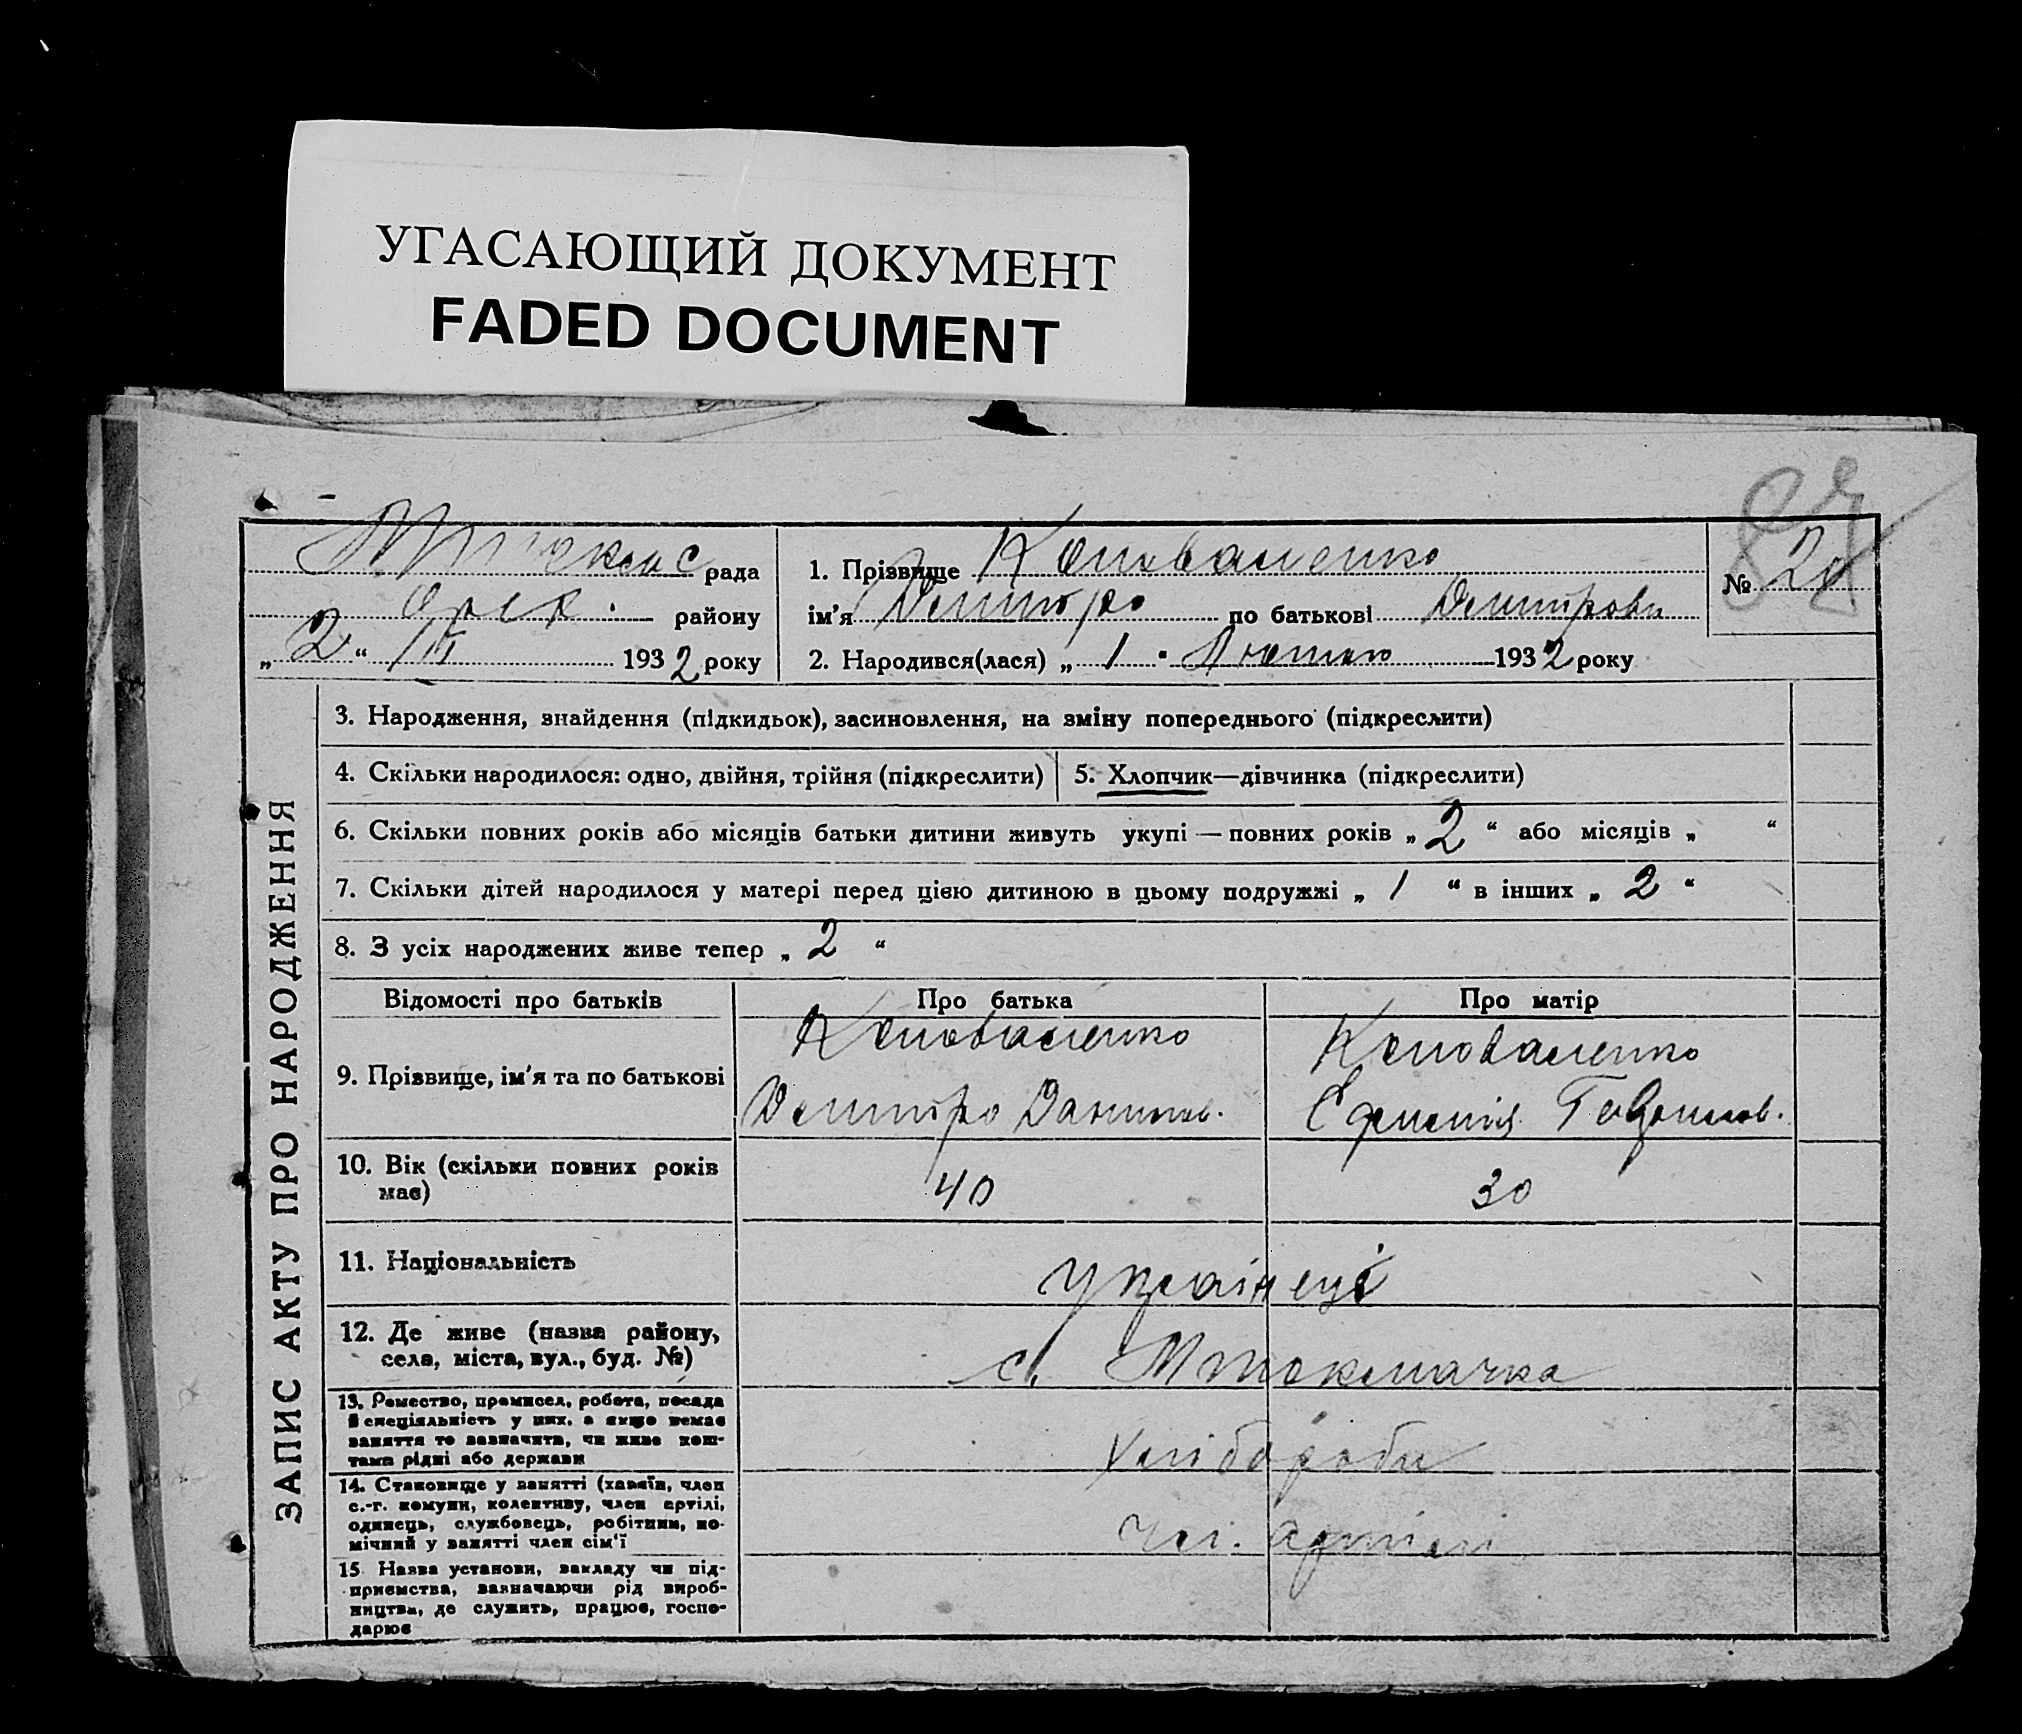 УГАСАЮЩИЙ ДОКУМЕНТ
FADED DOCUMENT
ЗАПИС АКТУ ПРО НАРОДЖЕННЯ
рада
Оріх. району
„2“ /III 1932 року
1. Прізвище Коноваленко
ім'я Дмитро по батькові Дмитрови
2. Народився(лася) „1“ Лютого 1932 року
№ 20
3. Народження, знайдення (підкидьок), засиновлення, на зміну попереднього (підкреслити)
4. Скільки народилося: одно, двійня, трійня (підкреслити)
5. Хлопчик—дівчинка (підкреслити)
6. Скільки повних років або місяців батьки дитини живуть укупі — повних років „2“ або місяців „ “
7. Скільки дітей народилося у матері перед цією дитиною в цьому подружжі „1“ в інших „2“
8. З усіх народжених живе тепер „2“
Відомості про батьків Про батька Про матір
9. Прізвище, ім'я та по батькові
Коноваленко
Дмитро Данилов.
Коноваленко
Гаврилов.
10. Вік (скільки повних років
має)
40 30
11. Національність
Українці
12. Де живе (назва району,
села, міста, вул., буд. №)
с. Мтокмачка
13. Ремество, промисел, робота, посада
й спеціяльність у них, а якщо немає
заняття то зазначити, чи живе кош-
тами рідні або держави
Хлібороби
14. Становище у занятті (хазяїн, член
с.-г. комуни, колективу, член артілі,
одинець, службовець, робітник, по-
мічний у занятті член сім'ї
чл. артілі
15 Назва установи, закладу чи під-
приємства, зазначаючи рід вироб-
ництва, де служить, працює, госпо-
дарює